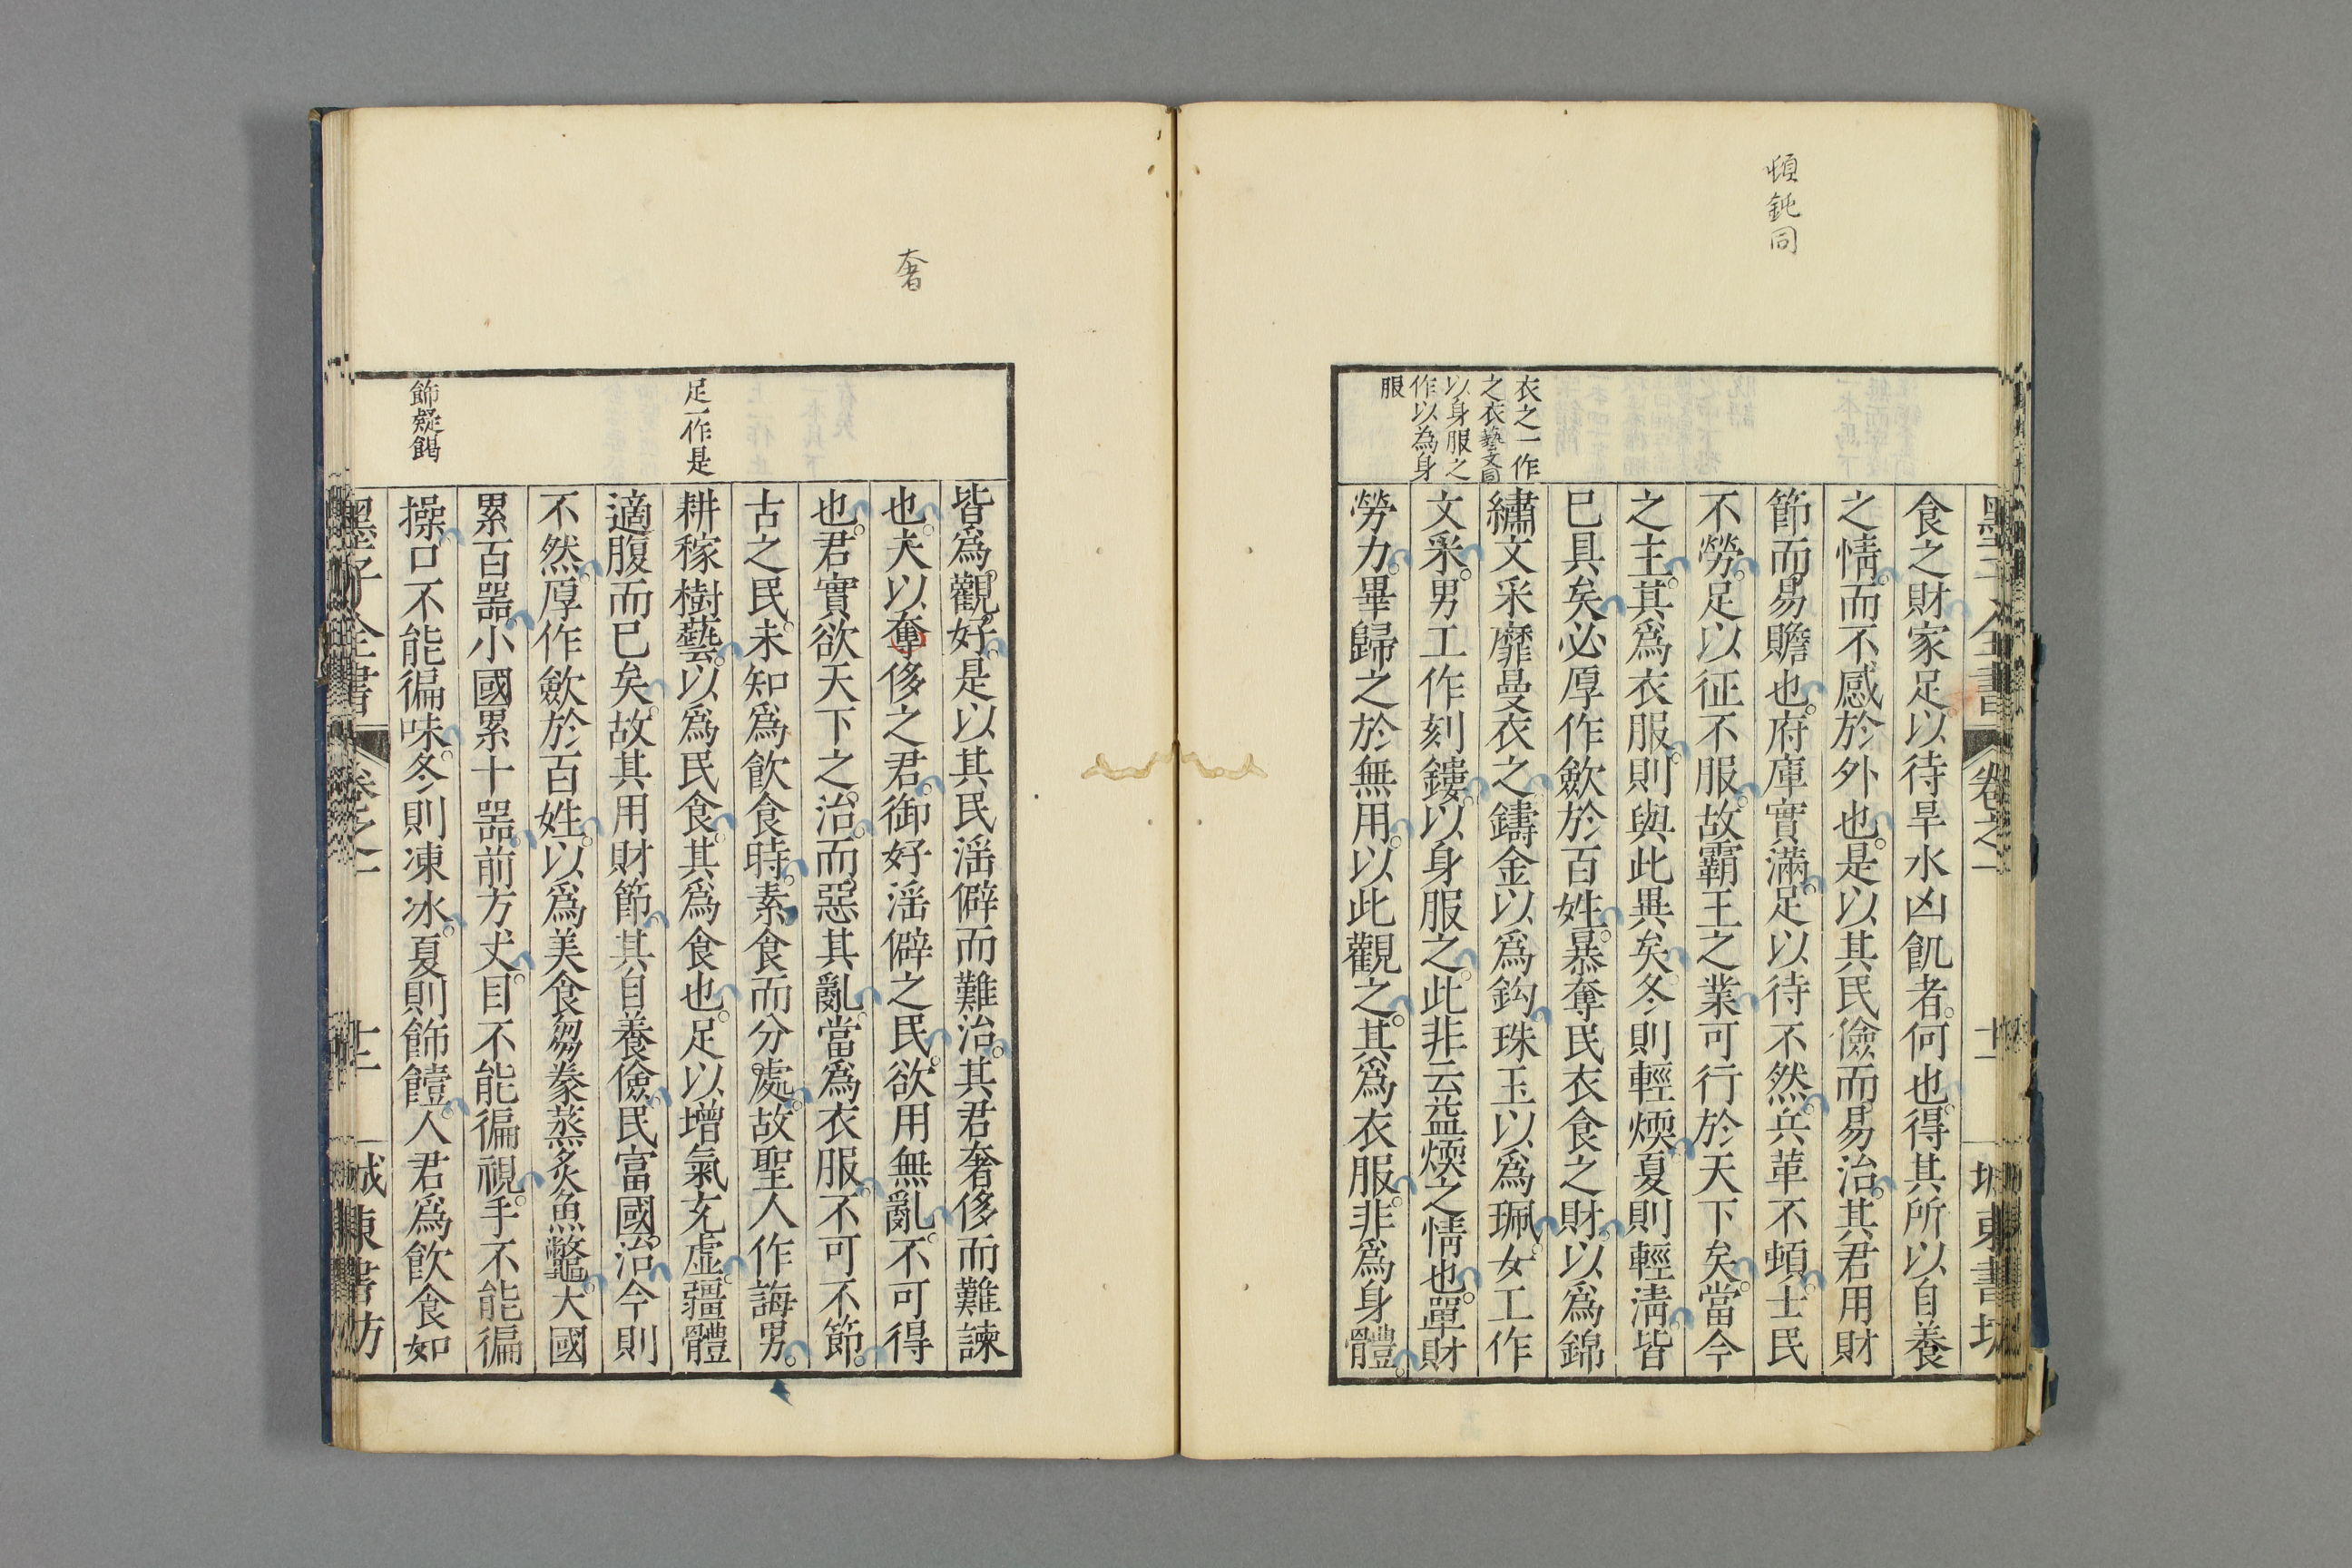 頓鈍同
墨子全書 卷之一 十一 城東書坊
食之財家足以待旱水凶飢者何也得其所以自養
之情而不感於外也是以其民儉而易治其君用財
節而易贍也府庫實滿足以待不然兵革不頓士民
不勞足以征不服故霸王之業可行於天下矣當今
之主其爲衣服則與此異矣冬則輕煗夏則輕凊皆
巳具矣必厚作斂於百姓暴奪民衣食之財以爲錦
繡文采靡曼衣之鑄金以爲鈎珠玉以爲珮女工作
文采男工作刻鏤以身服之此非云益煗之情也單財
勞力畢歸之於無用以此觀之其爲衣服非爲身體
衣之一作
之衣藝文同
以身服之
作以為身
服
奢
皆爲觀好是以其民淫僻而難治其君奢侈而難諫
也夫以奪侈之君御好淫僻之民欲用無亂不可得
也君實欲天下之治而惡其亂當爲衣服不可不節
古之民未知爲飲食時素食而分處故聖人作誨男
耕稼樹藝以爲民食其爲食也足以增氣充虛疆體
適腹而巳矣故其用財節其自養儉民富國治今則
不然厚作斂於百姓以爲美食芻豢蒸炙魚鼈大國
累百噐小國累十噐前方丈目不能徧視手不能徧
操口不能徧味冬則凍冰夏則飾饐人君爲飲食如
足一作是
飾疑餲
墨子全書 卷之一 十二 城東書坊